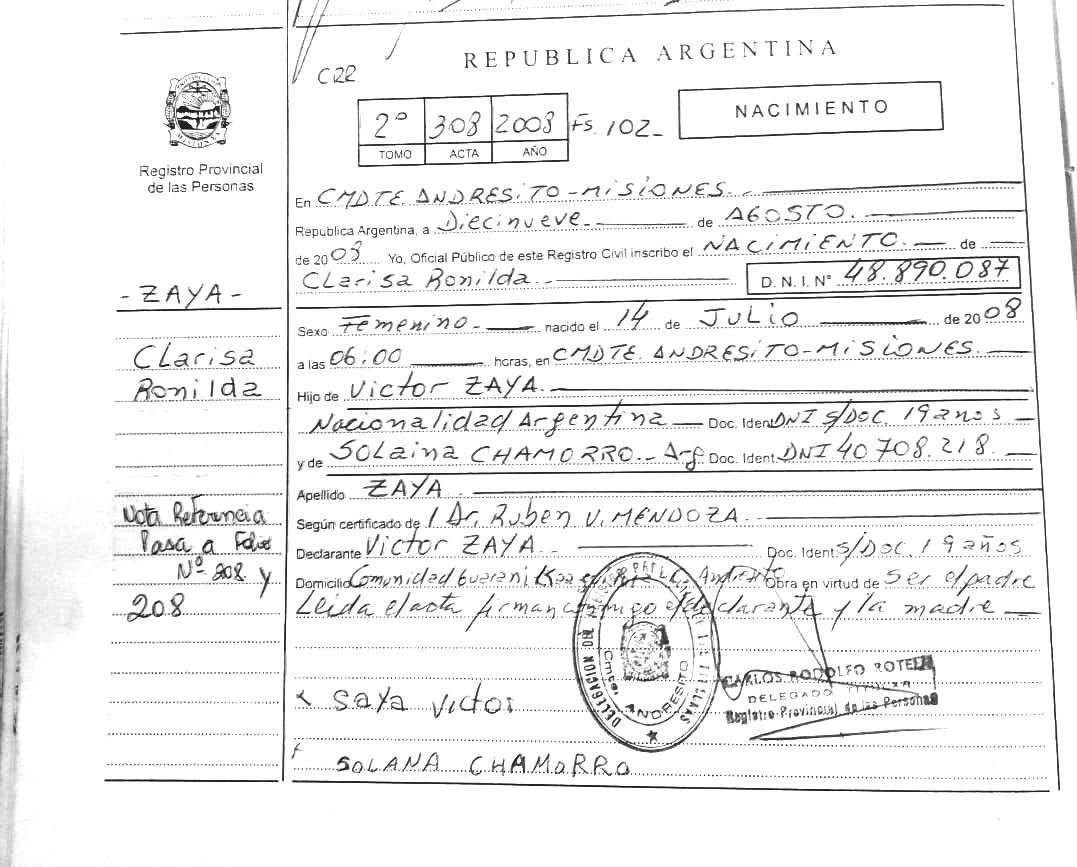 REPUBLICA ARGENTINA
C22
2° 308 2008 Fs. 102-
TOMO ACTA AÑO
NACIMIENTO
PROVINCIA DE MISIONES
Registro Provincial
de las Personas
- ZAYA -
Clarisa
Ronilda
Nota Referencia
Pasa a Folio
Nº 208 y
208
En CMDTE ANDRESITO-MISIONES.
Republica Argentina, a Diecinueve de AGOSTO.
de 2008 Yo, Oficial Público de este Registro Civil inscribo el NACIMIENTO. de
Clarisa Ronilda. D. N. I. N° 48.890.087
Sexo Femenino- nacido el 14 de JULIO de 2008
a las 06:00 horas, en CMDTE. ANDRESITO-MISIONES.
Hijo de Victor ZAYA.
Nacionalidad Argentina Doc. Ident DNI S/DOC. 19 años
y de SOLaina CHAMORRO.- Arg Doc. Ident. DNI 40708.218.
Apellido ZAYA.
Según certificado de Dr. Ruben V. MENDOZA.
Declarante Victor ZAYA. Doc. Ident S/DOC, 19 años
Domicilio Comunidad Guarani Andresito Obra en virtud de Ser el padre
Leida el acta firman conmigo el declarante y la madre
CARLOS RODOLFO
DELEGADO TITULAR
Registro Provincial de las Personas
Cmte. ANDRESITO
SAYA VICTOR
SOLANA CHAMORRO